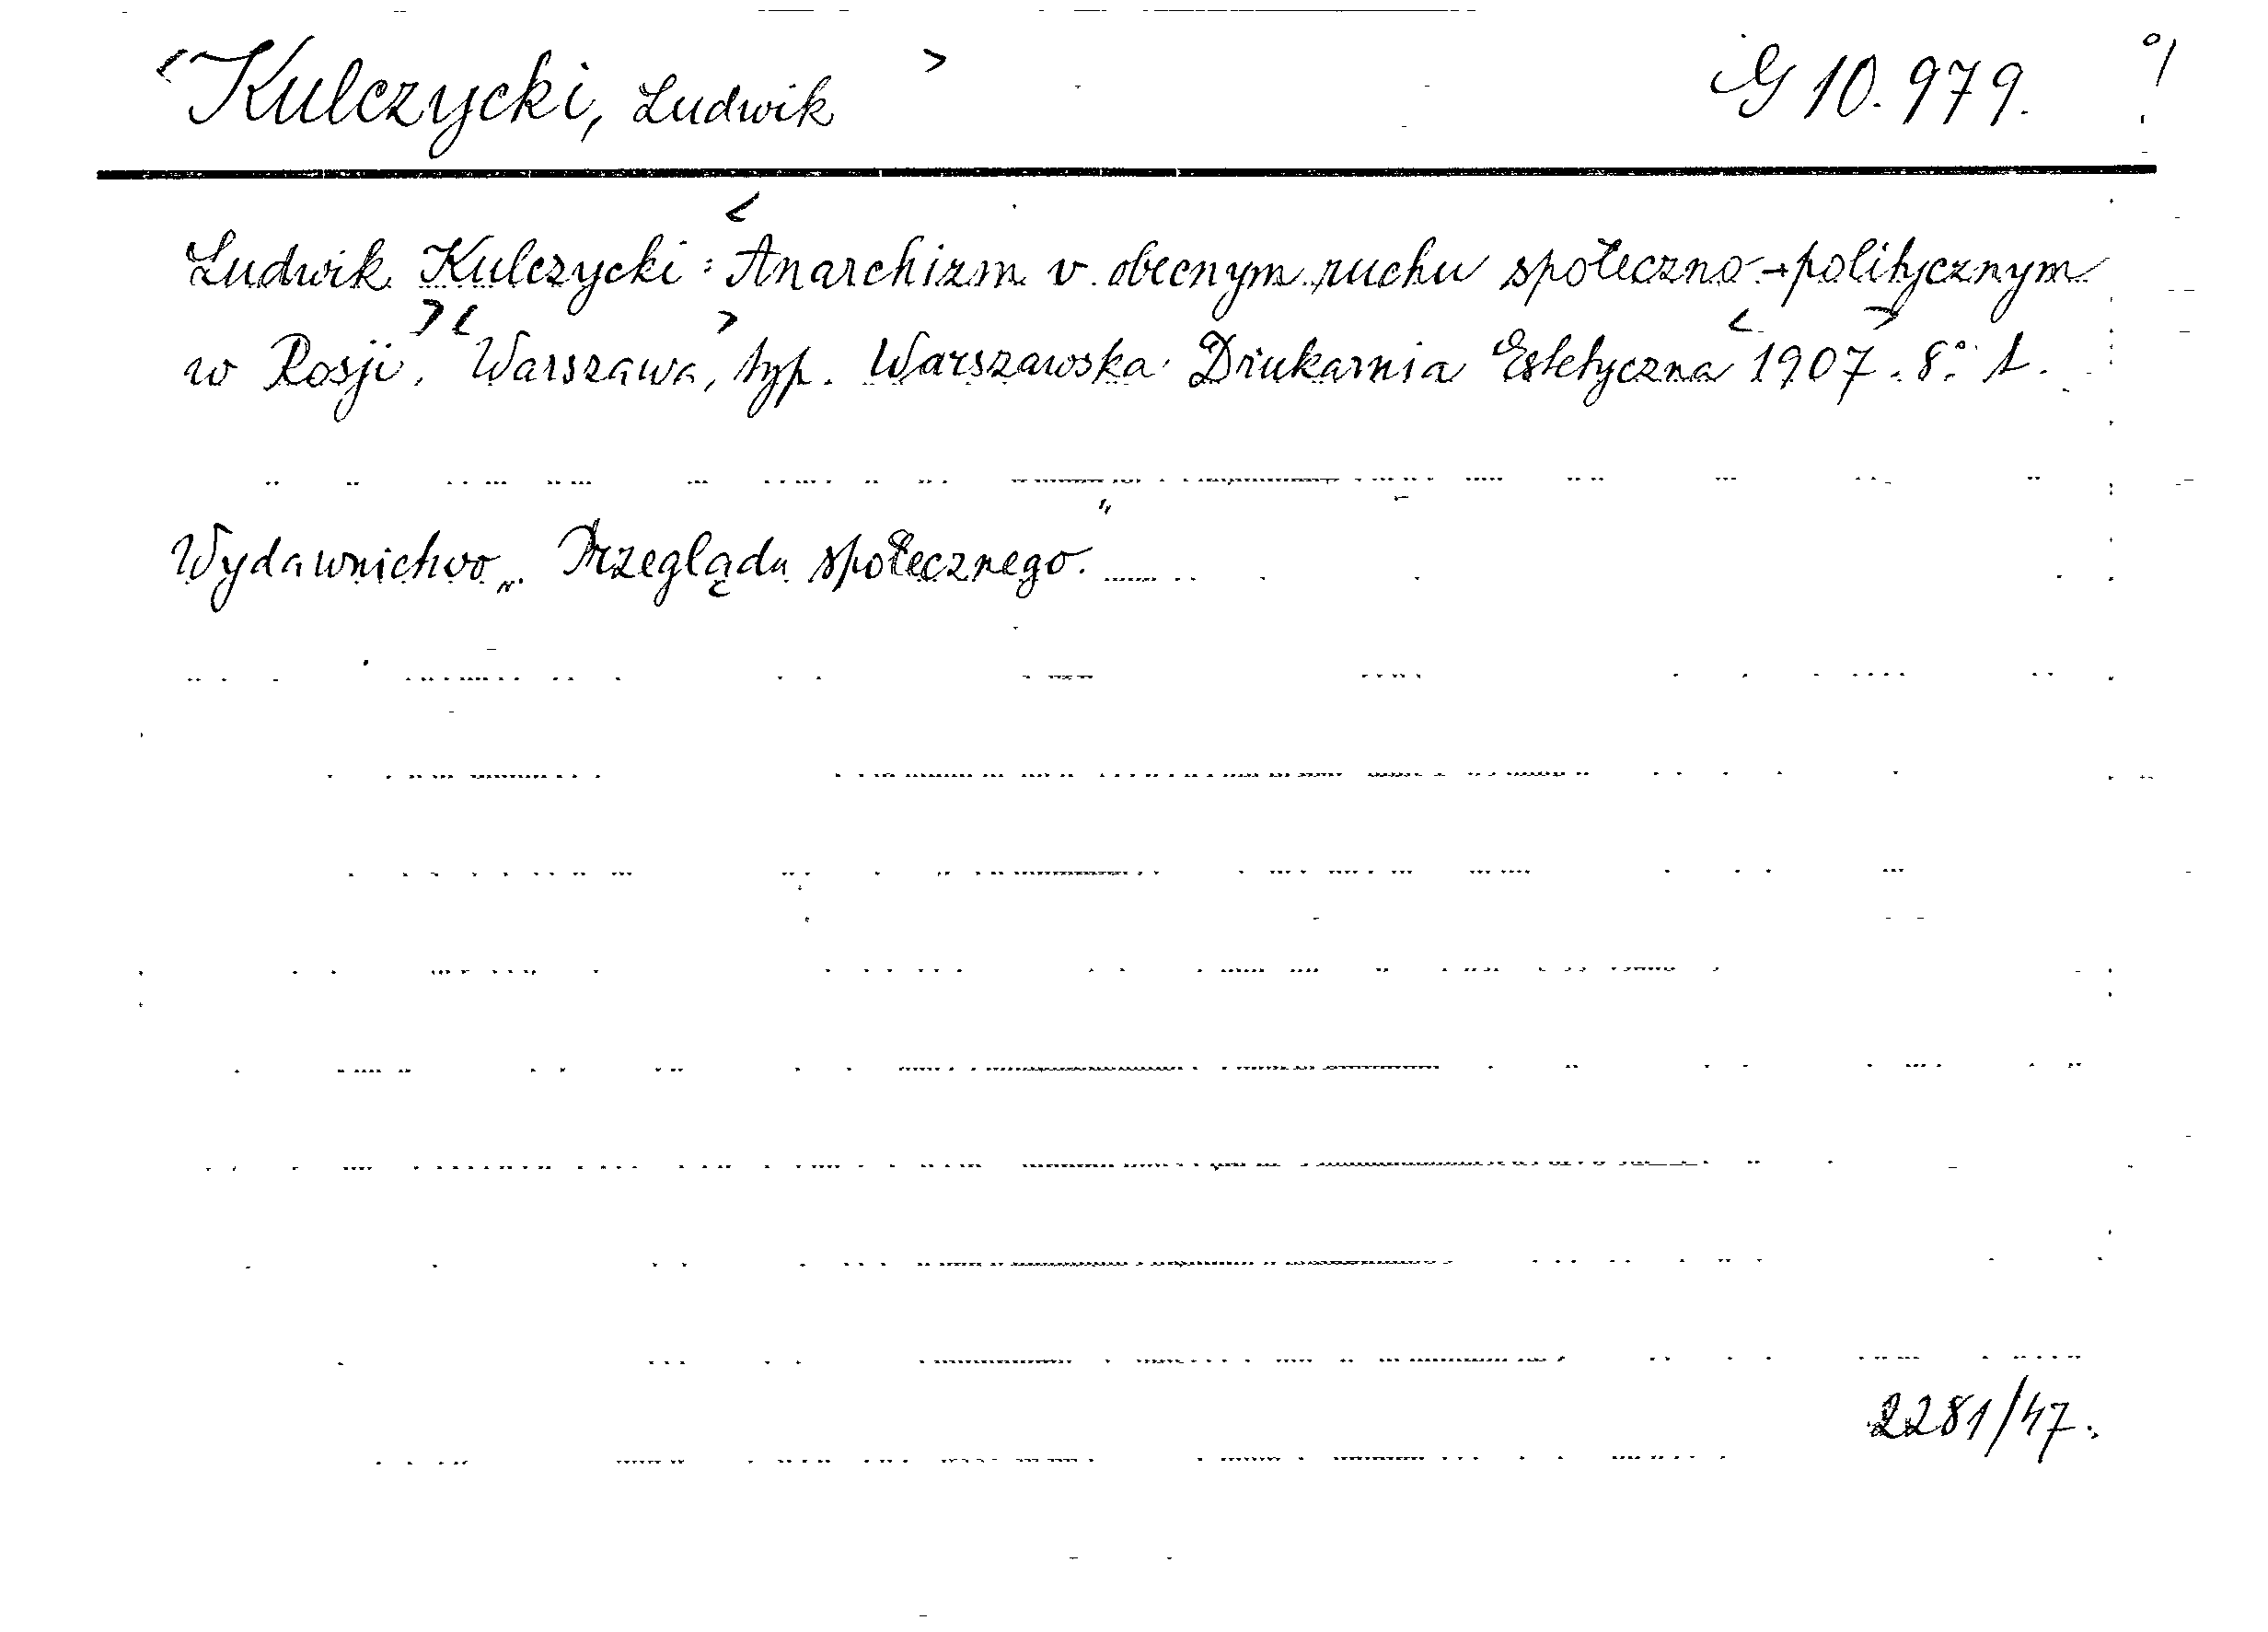 <Kulczycki, Ludwik> G 10.979.
Ludwik Kulczycki: <Anarchizm v obecnym ruchu społeczno-politycznym
w Rosji.> <Warszawa,> typ. Warszawska Drukarnia Estetyczna <1907>. 8°. 1.
Wydawnictwo „Przeglądu społecznego."
2281/47.